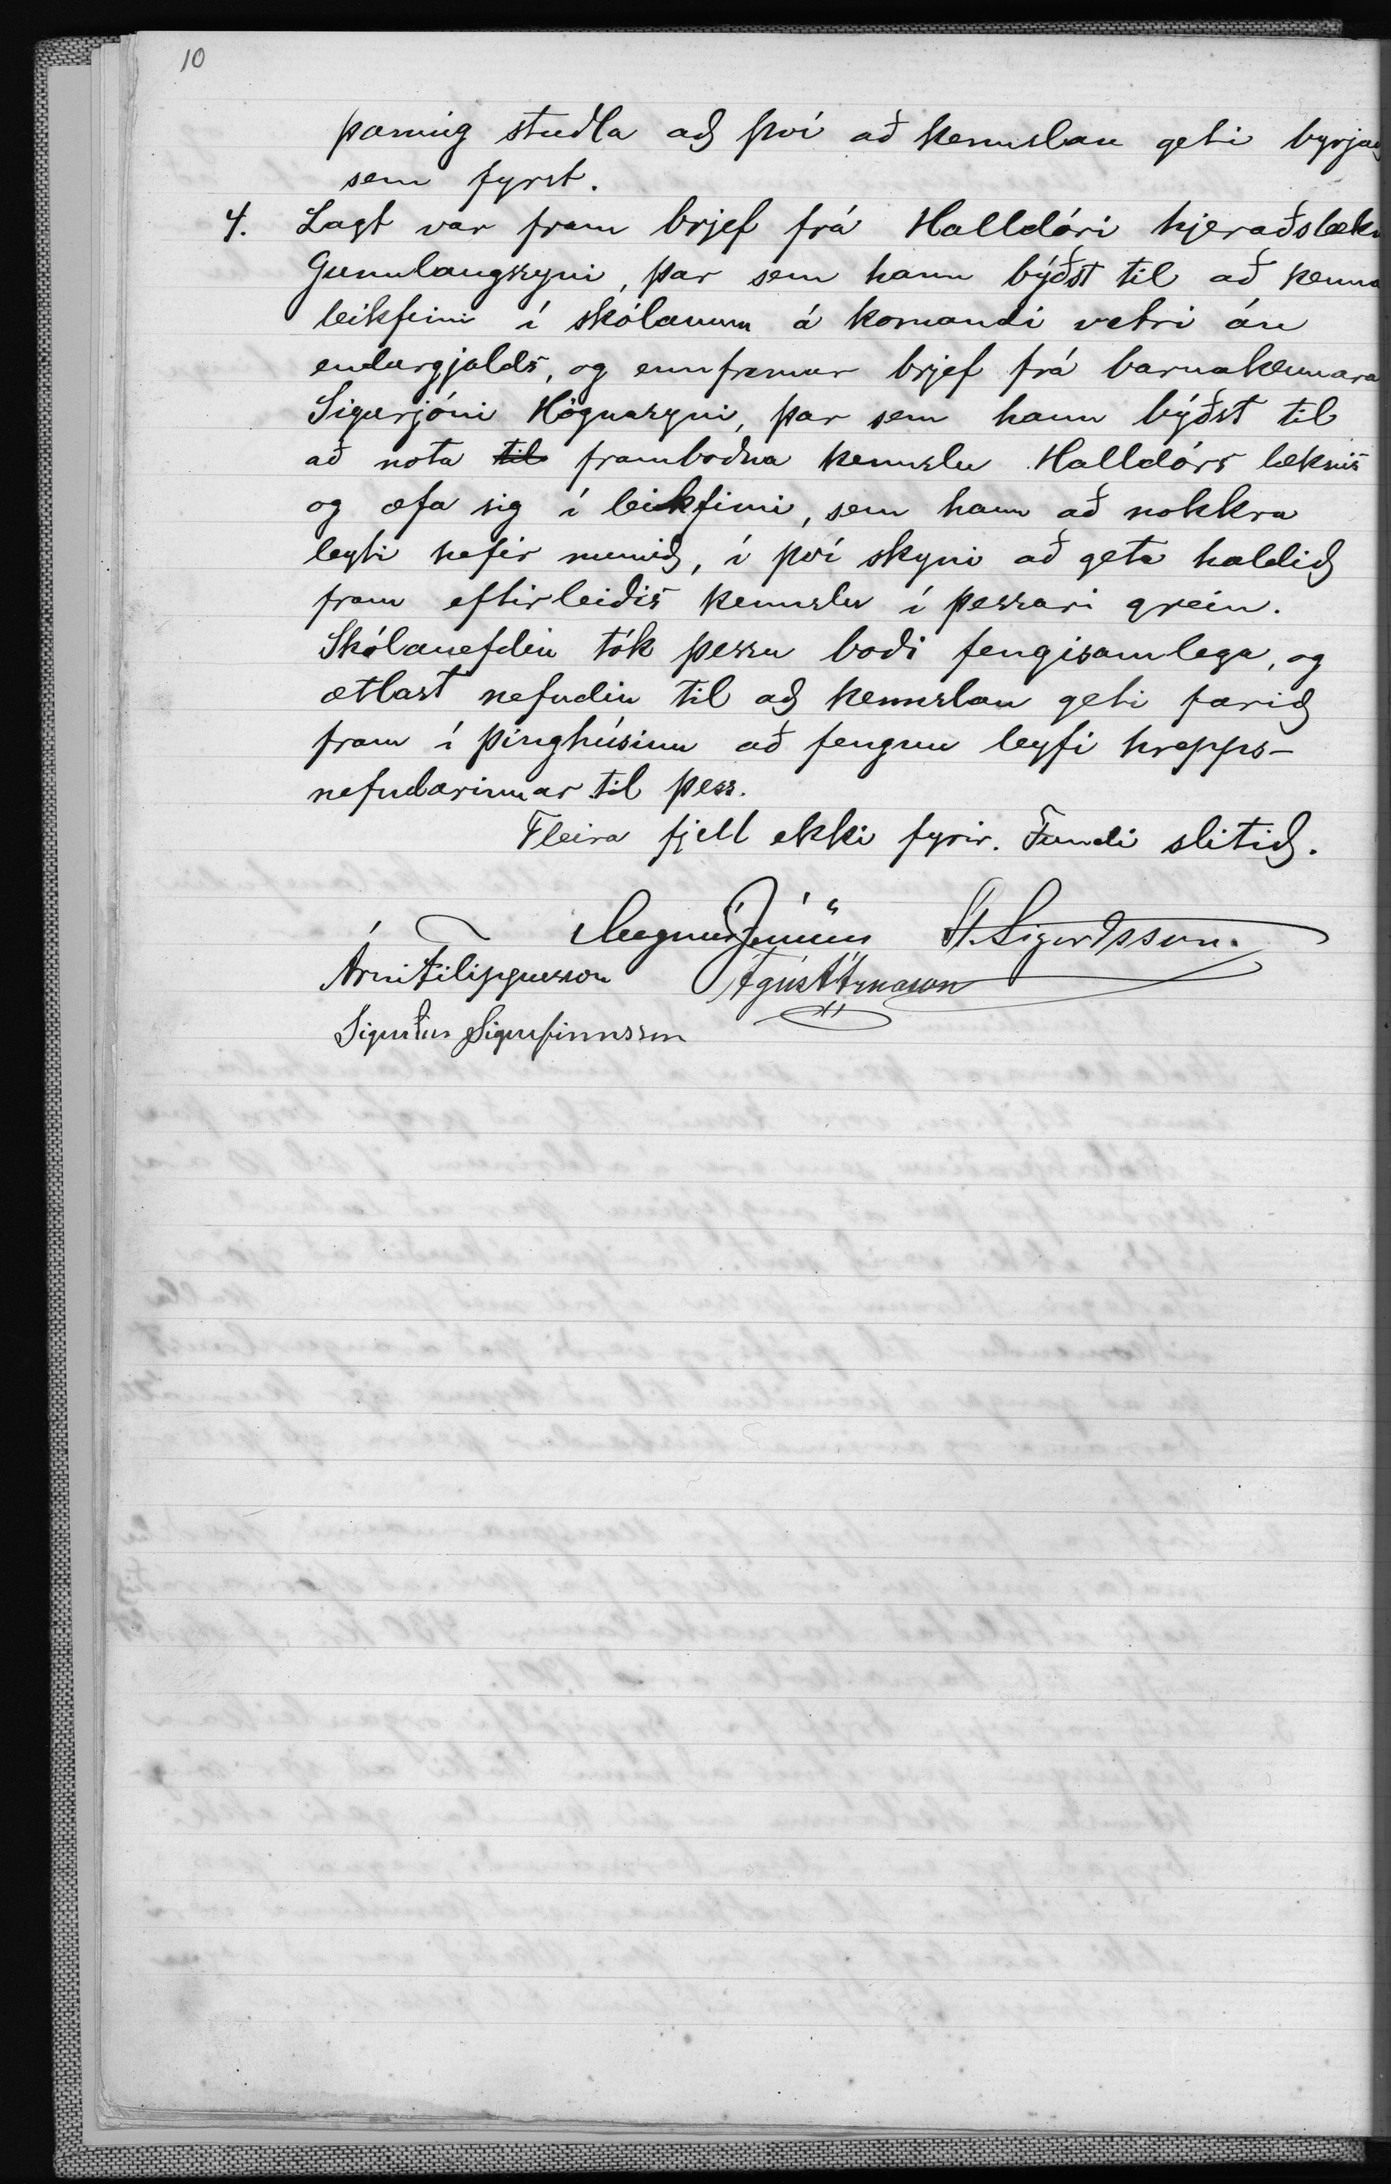 10
þannig stuðla að því að kennslan geti byrjað
sem fyrst.
4. Lagt var fram brjef frá Halldóri hjeraðslækn
Gunnlaugssyni, þar sem hann býðst til að kenna
leikfimi í skólanum á komandi vetri án
endurgjalds, og ennfremur brjef frá barnakennara
Sigurjóni Högnasyni, þar sem hann býðst til
að nota til framboðna kennslu Halldórs læknis
og æfa sig í leikfimi, sem hann að nokkru
leyti hefir numið, í því skyni að geta haldið
fram eftirleiðis kennslu í þessari grein.
Skólanefdin tók þessu boði fengisamlega, og
ætlast nefndin til að kennslan geti farið
fram í þinghúsinu að fengnu leyfi hrepps-
nefndarinnar til þess.
Fleira fjell ekki fyrir. Fundi slitið.
Magnús Jónsson St. Sigurðsson.
Árni Filippusson Ágúst Árnason
Sigurður Sigurfinnsson